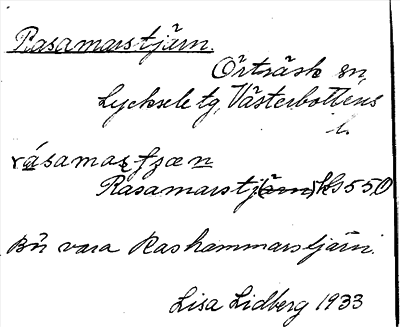 Rasamarstjärn.
Örträsk sn,
Lycksele tg, Västerbottens
l.
Rasamarstj(ärn) Ks 550
Bör vara Rashammarstjärn.
Lisa Lidberg 1933